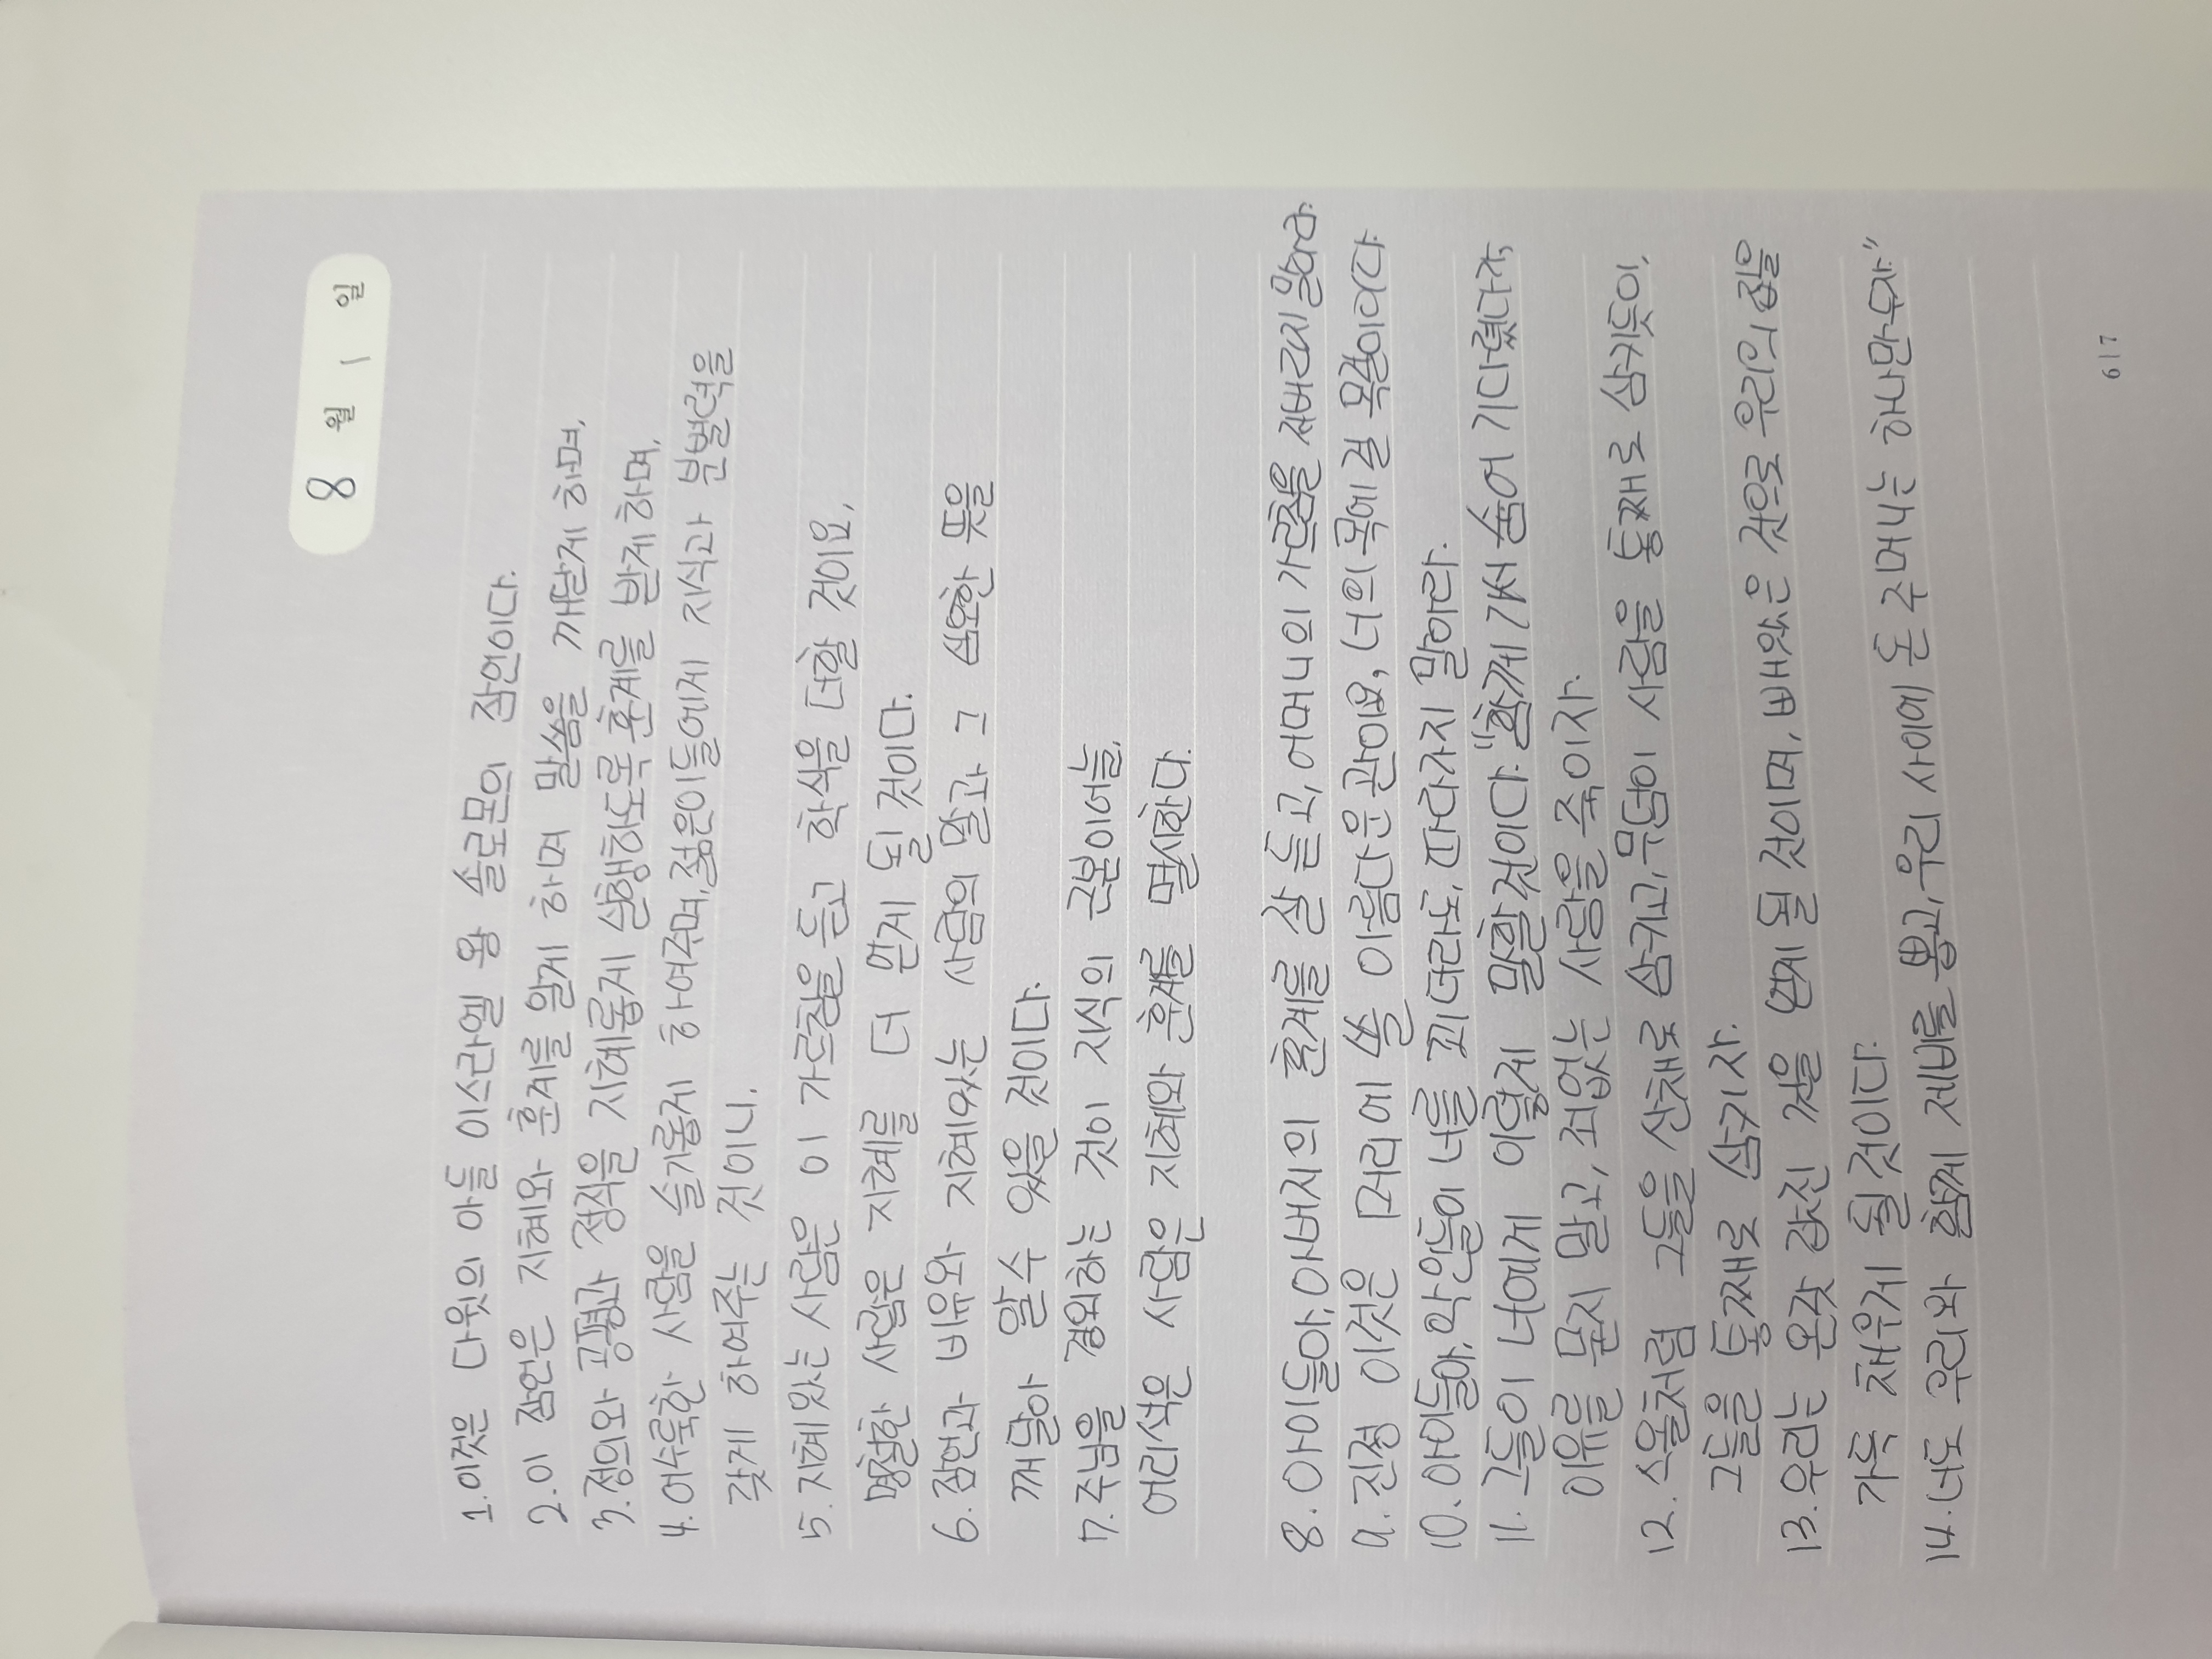 8 월 1 일
1. 이것은 다윗의 아들 이스라엘 왕 솔로몬의 잠언이다.
2. 이 잠언은 지혜와 훈계를 알게 하며 말씀을 깨닫게 하며,
3. 정의와 공평과 정직을 지혜롭게 실행하도록 훈계를 받게 하며,
4. 어수룩한 사람을 슬기롭게 하여주며, 젊은이들에게 지식과 분별력을
갖게 하여주는 것이니,
5. 지혜있는 사람은 이 가르침을 듣고 학식을 더할 것이요,
명철한 사람은 지혜를 더 얻게 될 것이다.
6. 잠언과 비유와 지혜있는 사람의 말과 그 심오한 뜻을
깨달아 알 수 있을 것이다.
7. 주님을 경외하는 것이 지식의 근본이어늘,
어리석은 사람은 지혜와 훈계를 멸시한다.
8. 아이들아, 아버지의 훈계를 잘 듣고, 어머니의 가르침을 저버리지 말아라.
9. 진정 이것은 머리에 쓸 아름다운 관이요, 너의 목에 걸 목걸이이다.
10. 아이들아, 악인들이 너를 꾀더라도, 따라가지 말아라.
11. 그들이 너에게 이렇게 말할 것이다. "함께 가서 숨어 기다렸다가,
이유를 묻지 말고, 죄없는 사람을 죽이자.
12. 스올처럼 그들을 산채로 삼키고, 무덤이 사람을 통째로 삼키듯이,
그들을 통째로 삼키자.
13. 우리는 온갖 값진 것을 얻게 될 것이며, 빼앗은 것으로 우리의 집을
가득 채우게 될 것이다.
14. 너도 우리와 함께 제비를 뽑고, 우리 사이에 돈 주머니는 하나만 두자."
617